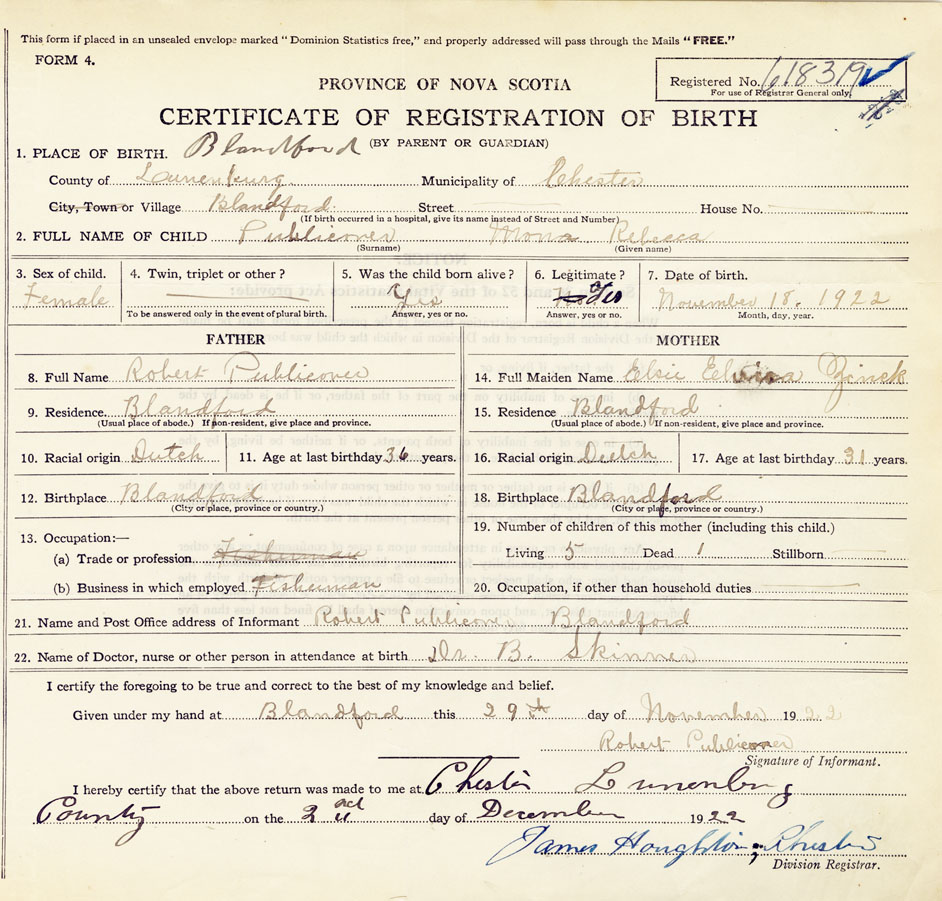 This form if placed in an unsealed envelope marked "Dominion Statistics free," and properly addressed will pass through the Mails "FREE."
FORM 4.
Registered No. 618319
For use of Registrar General only.
PROVINCE OF NOVA SCOTIA
CERTIFICATE OF REGISTRATION OF BIRTH
(BY PARENT OR GUARDIAN)
1. PLACE OF BIRTH. Blandford
County of Lunenburg Municipality of Chester
City, Town or Village Blandford Street House No.
(If birth occurred in a hospital, give its name instead of Street and Number)
2. FULL NAME OF CHILD Publicover Mona Rebecca
(Surname) (Given name)
3. Sex of child. 4. Twin, triplet or other? 5. Was the child born alive? 6. Legitimate? 7. Date of birth.
Female Yes Yes November 18. 1922
To be answered only in the event of plural birth. Answer, yes or no. Answer, yes or no. Month, day, year.
FATHER MOTHER
8. Full Name Robert Publicover 14. Full Maiden Name Elsie Zinck
9. Residence. Blandford 15. Residence Blandford
(Usual place of abode.) If non-resident, give place and province. (Usual place of abode.) If non-resident, give place and province.
10. Racial origin Dutch 11. Age at last birthday 36 years. 16. Racial origin Dutch 17. Age at last birthday 31 years.
12. Birthplace Blandford 18. Birthplace Blandford
(City or place, province or country.) (City or place, province or country.)
13. Occupation:— 19. Number of children of this mother (including this child.)
(a) Trade or profession Fisherman Living 5 Dead 1 Stillborn
(b) Business in which employed Fisherman 20. Occupation, if other than household duties
21. Name and Post Office address of Informant Robert Publicover Blandford
22. Name of Doctor, nurse or other person in attendance at birth Dr. B. Skinner
I certify the foregoing to be true and correct to the best of my knowledge and belief.
Given under my hand at Blandford this 29th day of November 1922
Robert Publicover
Signature of Informant.
I hereby certify that the above return was made to me at Chester Lunenburg
County on the 2nd day of December 1922
James Houghton, Chester
Division Registrar.